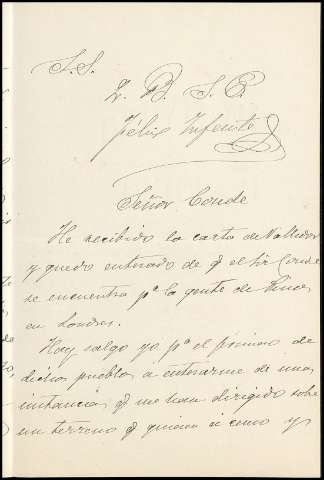 S. S.
Q. B. S. P.
Félix Infante
Señor Conde
He recibido la carta de Vallador
y quedo enterado de q el Sr Conde
se encuentra pª la gente de
en Londres.
Hoy salgo yo pª el primero de
dichos pueblos a enterarme de unas
instancias q me han dirigido sobre
un terreno q quieren a censo y